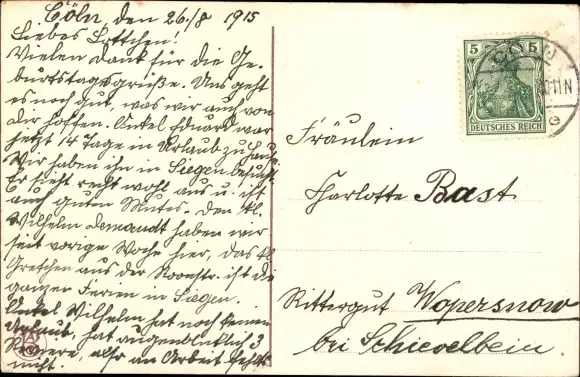 Cöln, den 26./8 1915
Liebes Lottchen!
Vielen Dank für die Ge-
burtstagsgrüße. Uns geht
es noch gut, was wir auch von
Dir hoffen. Onkel Eduard war
jetzt 14 Tage in Urlaub zu Hause
Wir haben ihn in Siegen besucht.
Er sieht recht wohl aus u. ist
auch guten Mutes. Den kl.
Wilhelm Demandt haben wir
seit vorige Woche hier, das kl.
Gretchen aus der Roonstr. ist die
ganzen Ferien in Siegen.
Onkel Wilhelm hat noch keinen
Urlaub, hat augenblicklich 3
also an Arbeit fehlts
nicht.
5 5
DEUTSCHES REICH
11 N
Fräulein
Charlotte Bast
Rittergut Wopersnow
bei Schievelbein.